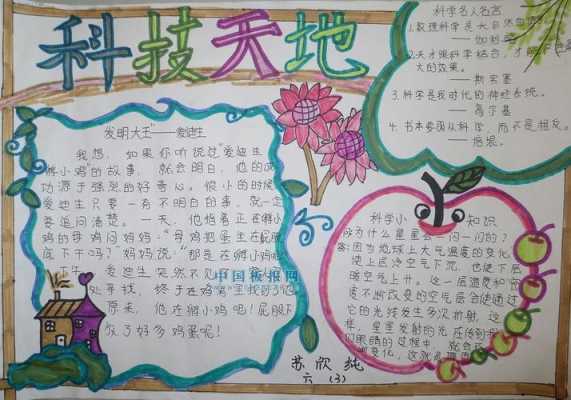 科技天地
发明大王"——爱迪生
我想,如果你听说过"爱迪生
孵小鸡"的故事,就会明白,他的成
功源于强烈的好奇心。很小的时候
爱迪生只要一有不明白的事,就一定
要追问清楚。一天,他指着正在孵小
鸡的母鸡问妈妈:"母鸡把蛋坐在屁股
底下干吗?"妈妈说:"那是在孵小鸡呢
爱迪生突然不见了
处寻找,终于在鸡窝里找到了他
原来,他在孵小鸡呢!屁股下
放了好多鸡蛋呢!
中国板报网
科学名人名言
1.数理科学是大自然
——伽利略
2.天才跟科学结合,才能
大的效果。
——斯宾塞
3.科学是我时代的神经系统。
——高尔基
4.书本要跟从科学,而不是相反。
——培根
科学小知识
问为什么星星会一闪一闪的?
答:因为地球上大气温度的变化,
使上层冷空气下沉,也使下层
暖空气上升。这一层温度和密
度不断改变的空气层会使通过
它的光线发生多次折射,这
样,星星发射的光在传到
们眼睛的过程中,就会
变化,这就是
苏欣纯
六(3)